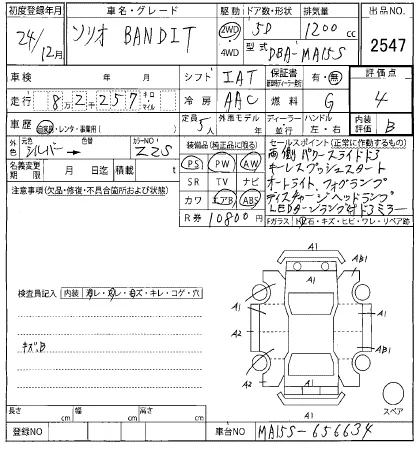 初度登録年月 車名・グレード 駆動 ドア数・形状 排気量 出品NO.
24/12月 ソリオ BANDIT 2WD 4WD 5D 1200cc 2547
型式 DBA-MA15S
車検 年 月 シフト IAT 保証書 有・無 評価点
走行 8万2千257 キロ マイル 冷房 AAC 燃料 G 4
車歴 自家用・レンタ・事業用( ) 定員 5人 外車モデル 年 ディーラー 並行 ハンドル 左・右 内装評価 B
外色 元色 シルバー → 色替 カラーNO. Z2S 装備品(純正品に限る) セールスポイント(正常に作動するもの)
名義変更期限 月 日迄 積載 t PS PW AW 両側パワースライドドア
注意事項(欠品・修復・不具合箇所および状態) SR TV ナビ キーレスプッシュスタート
カワ エアB ABS オートライト、フォグランプ
R券 10800円 ディスチャージヘッドランプ
LEDターンランプ付ドアミラー
Fガラス 飛石・キズ・ヒビ・ワレ・リペア跡
検査員記入 内装 ヨゴレ・スレ・キズ・キレ・コゲ・穴
キズ.B
A1
A1
AB1
A1
A2
A1
A1
AB1
A2
A2
A1
スペア
長さ cm 幅 cm 高さ cm
登録NO 車台NO MA15S-656634